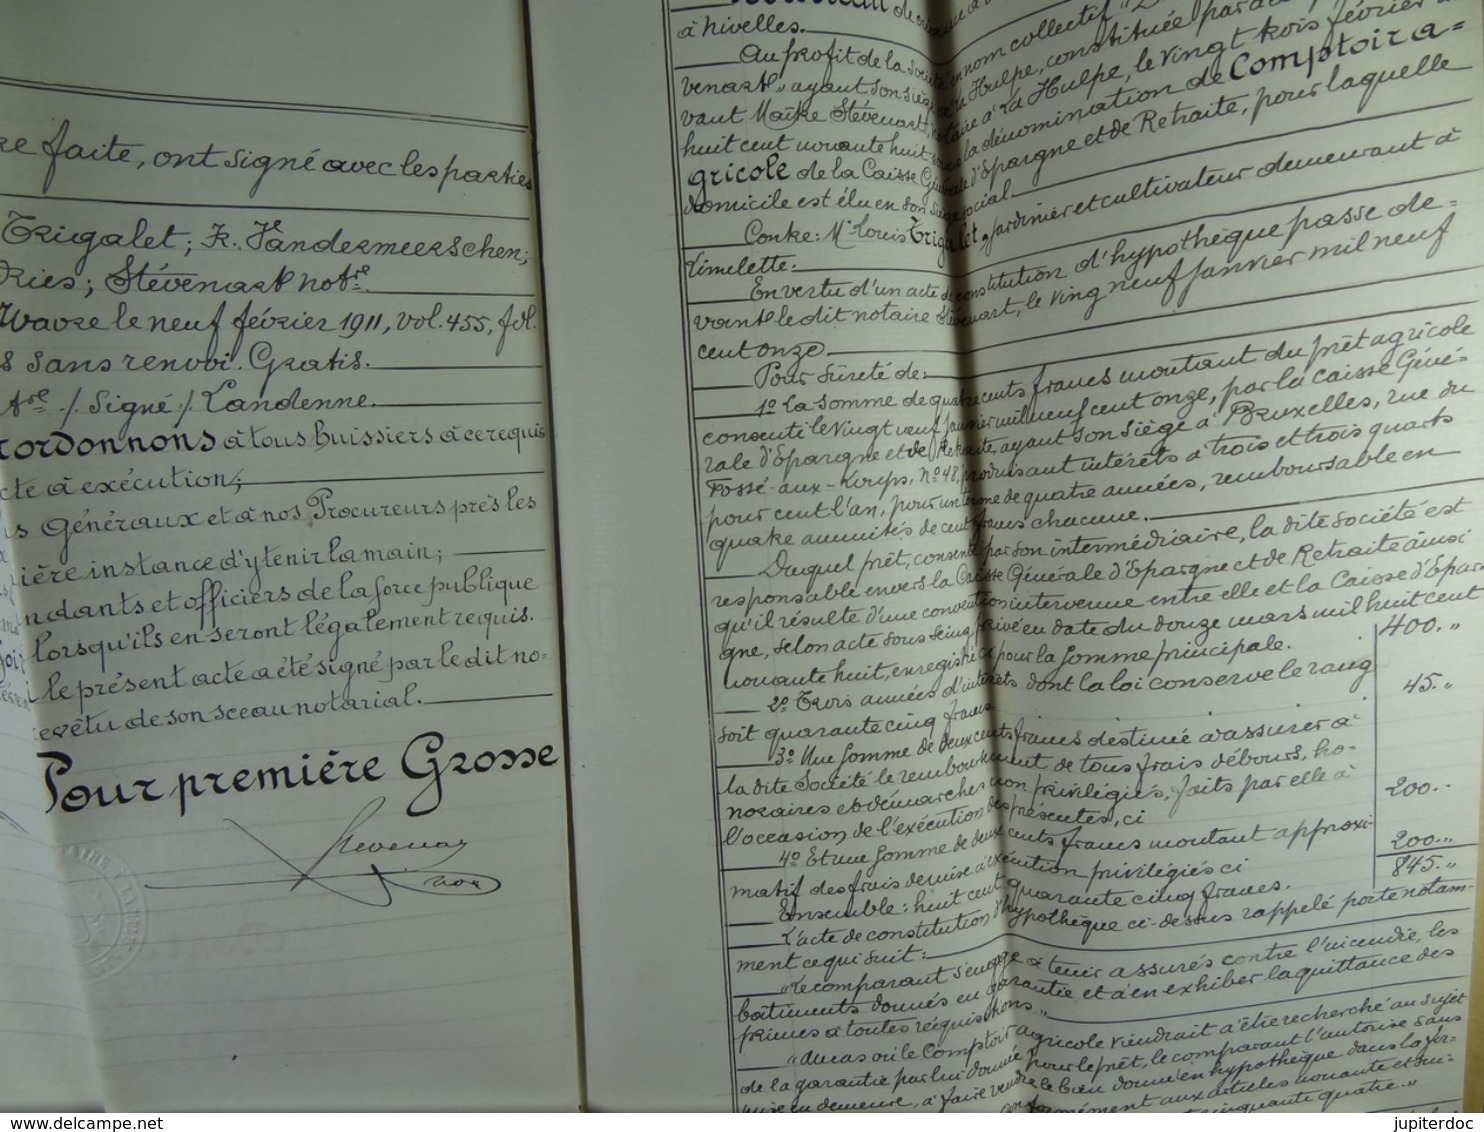 re faite, ont signé avec les parties
Trigalet; K. Vandermeerschen;
ries; Stévenart not.re
Wavre le neuf février 1911, vol. 455, fol.
s sans renvoi. Gratis.
/ Signé / Landenne.
ordonnons à tous huissiers à ce requis
cte à exécution;
s Généraux et à nos Procureurs près les
ière instance d'y tenir la main;
ndants et officiers de la force publique
lorsqu'ils en seront légalement requis.
le présent acte a été signé par le dit no=
revêtu de son sceau notarial.
Pour première Grosse
Stevenart
à Nivelles.
Au profit de la Société en nom collectif "
venart" ayant son siège à La Hulpe, constituée par
vant Maître Stévenart, notaire à La Hulpe, le vingt trois février
huit cent nonante huit sous la dénomination de Comptoir a=
gricole de la Caisse Générale d'Epargne et de Retraite, pour laquelle
domicile est élu en son siège social.
Contre: Mr Louis Trigalet, jardinier et cultivateur demeurant à
Limelette:
En vertu d'un acte de constitution d'hypothèque passé de=
vant le dit notaire Stévenart, le ving neuf janvier mil neuf
cent onze
Pour sûreté de:
1º La somme de quatre cents francs montant du prêt agricole
consenti le vingt neuf janvier mil neuf cent onze, par la Caisse Géné=
rale d'Epargne et de Retraite, ayant son siège à Bruxelles, rue du
Fossé-aux-Loups, Nº 48, produisant intérêts à trois et trois quarts
pour cent l'an, pour un terme de quatre années, remboursable en
quatre annuités de cent francs chacune.
Duquel prêt, consenti par son intermédiaire, la dite Société est
responsable envers la Caisse Générale d'Epargne et de Retraite ainsi
qu'il résulte d'une convention intervenue entre elle et la Caisse d'Epar
gne, selon acte sous seing privé en date du douze mars mil huit cent
nonante huit, enregistré pour la somme principale. 400. "
2º Trois années d'intérêts dont la loi conserve le rang
soit quarante cinq francs 45. "
3º Une somme de deux cents francs destinée à assurer à
la dite Société le remboursement de tous frais débours, ho-
noraires et démarches non privilégiés, faits par elle à
l'occasion de l'exécution des présentes, ci 200. "
4º Et une somme de deux cents francs montant approxi-
matif des frais de mise à exécution privilégiés ci 200. "
Ensemble: huit cent quarante cinq francs. 845. "
L'acte de constitution d'hypothèque ci-dessus rappelé porte notam-
ment ce qui suit:
"Le comparant s'engage à tenir assurés contre l'incendie, les
bâtiments donnés en garantie et à en exhiber la quittance des
primes à toutes réquisitions."
"Au cas où le Comptoir agricole viendrait à être recherché au sujet
de la garantie par lui donnée pour le prêt, le comparant l'autorise sans
mise en demeure, à faire vendre le bien donné en hypothèque dans la for-
conformément aux articles nonante et sui-
cinquante quatre."
jupiterdoc